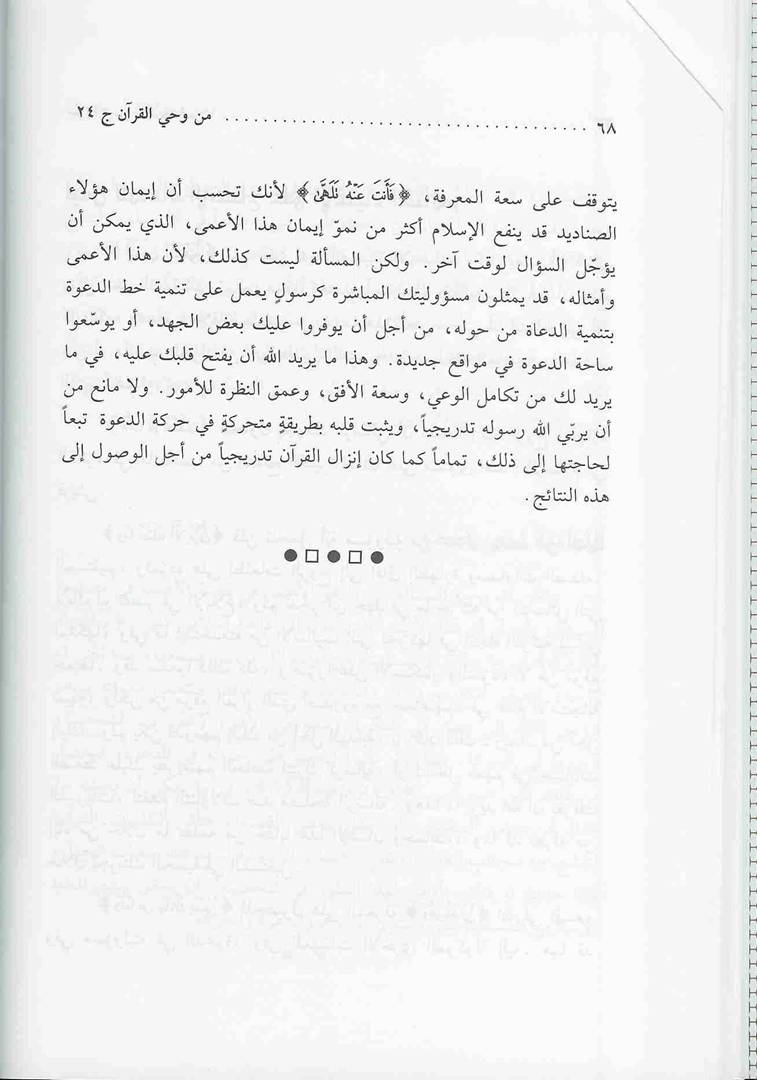 ٦٨ ...................................... من وحي القرآن ج ٢٤
يتوقف على سعة المعرفة، ﴿فَأَنتَ عَنْهُ تَلَهَّىٰ﴾ لأنك تحسب أن إيمان هؤلاء
الصناديد قد ينفع الإسلام أكثر من نموّ إيمان هذا الأعمى، الذي يمكن أن
يؤجّل السؤال لوقت آخر. ولكن المسألة ليست كذلك، لأن هذا الأعمى
وأمثاله، قد يمثلون مسؤوليتك المباشرة كرسولٍ يعمل على تنمية خط الدعوة
بتنمية الدعاة من حوله، من أجل أن يوفروا عليك بعض الجهد، أو يوسّعوا
ساحة الدعوة في مواقع جديدة. وهذا ما يريد الله أن يفتح قلبك عليه، في ما
يريد لك من تكامل الوعي، وسعة الأفق، وعمق النظرة للأمور. ولا مانع من
أن يربّي الله رسوله تدريجياً، ويثبت قلبه بطريقةٍ متحركةٍ في حركة الدعوة تبعاً
لحاجتها إلى ذلك، تماماً كما كان إنزال القرآن تدريجياً من أجل الوصول إلى
هذه النتائج.